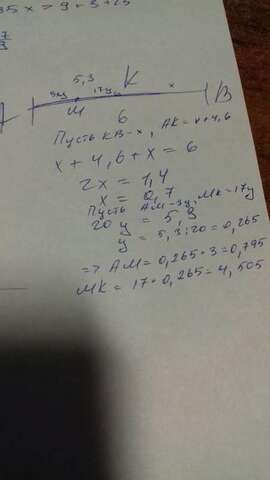 35x > 9 + 3 + 25
5,3 K
3y 17y x
A M 6 B
Пусть KB-x, AK=x+4,6
x + 4,6 + x = 6
2x = 1,4
x = 0,7
Пусть AM-3y, MK=17y
20y = 5,3
y = 5,3:20 = 0,265
=> AM = 0,265·3 = 0,795
MK = 17·0,265 = 4,505